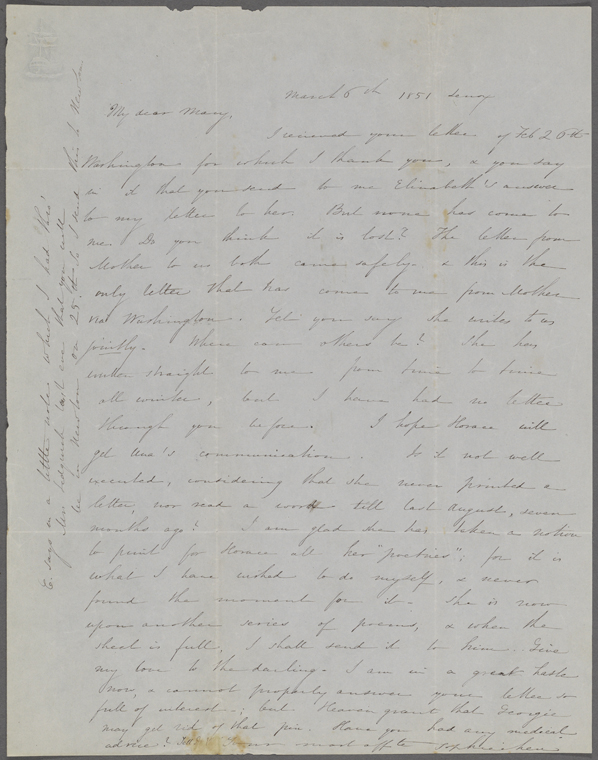 March 6th 1851 Lenox
My dear Mary,
I received your letter of Feb 26th
Washington for which I thank you, & you say
in it that you send to me Elizabeth's answer
to my letter to her. But none has come to
me. Do you think it is lost? The letter from
Mother to us both came safely & this is the
only letter that has come to me from Mother
via Washington. Yet you say she writes to us
jointly. Where can others be? She has
written straight to me from time to time
all winter, but I have had no letter
through you before. I hope Horace will
get Una's communication. Is it not well
executed, considering that she never printed a
letter, nor read a word till last August, seven
months ago? I am glad she has taken a notion
to print for Horace all her "poetries"; for it is
what I have wished to do myself, & never
found the moment for it. She is now
upon another series of poems, & when the
sheet is full, I shall send it to him. Give
my love to the darling. I am in a great haste
now, & cannot properly answer your letter so
full of interest; but Heaven grant that Georgie
may get rid of that pin. Have you had any medical
advice? most affte
E. says in a little note which I had thro'
Mrs Sedgwick last eve that you will
be in Newton on 25th so I send this to Newton